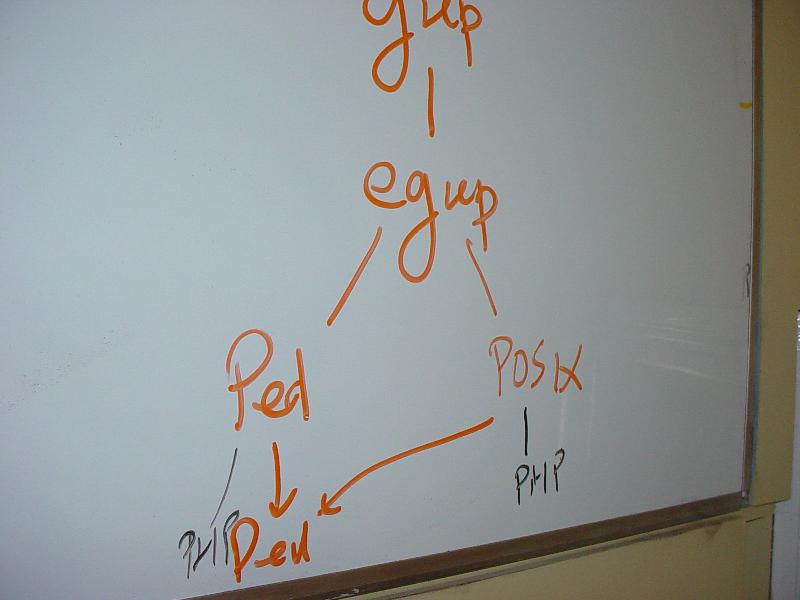 grep
egrep
Perl POSIX
PHP
PHP Perl